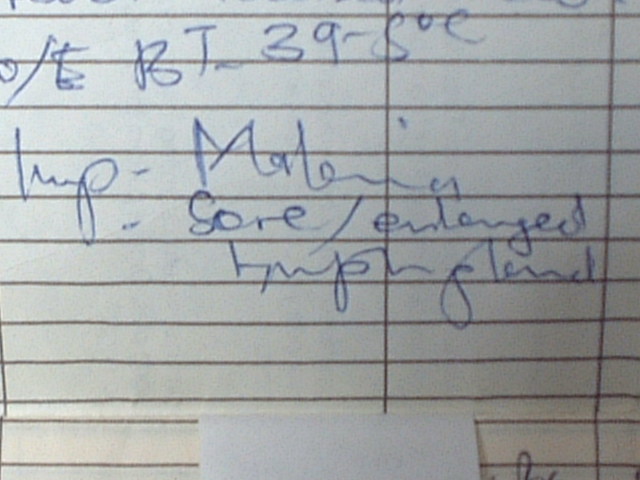 o/E BT- 39-8°C
Imp- Malaria
- Sore/enlarged
Lymph gland